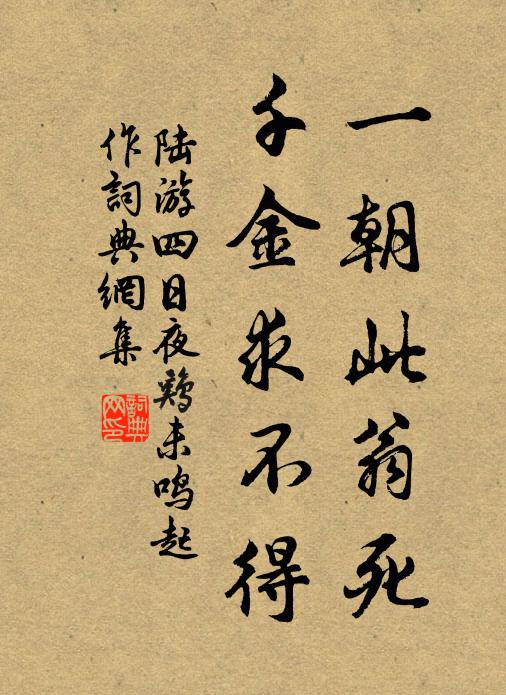 一朝此翁死
千金求不得
陆游四日夜鸡未鸣起
作詞典網集
詞典
网印